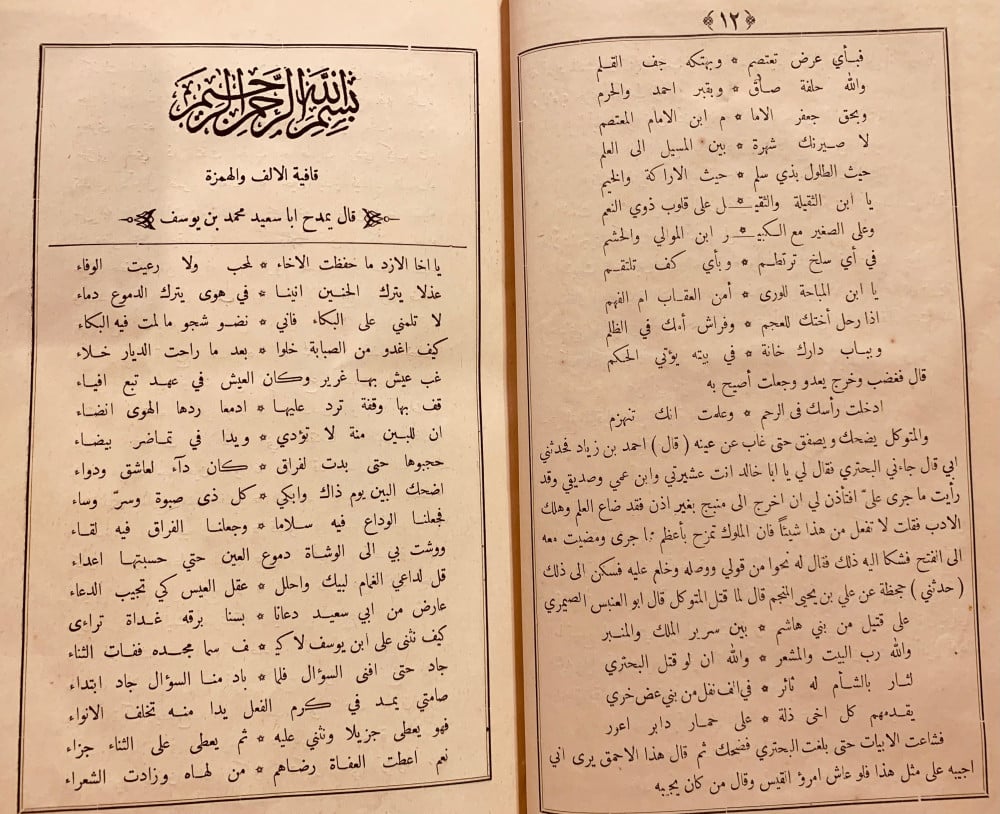 ﴿١٢﴾
فبأي عرض تعتصم * وبهتكه جف القلم
والله حلفة صادق * وبقبر احمد والحرم
وبحق جعفر الاما * م ابن الامام المعتصم
لا صيرنك شهرة * بين المسيل الى العلم
حيث الطلول بذي سلم * حيث الاراكة والخيم
يا ابن الثقيلة والثقيـ * ـل على قلوب ذوي النعم
وعلى الصغير مع الكبيـ * ـر ابن الموالي والحشم
في أي سلح ترتطم * وبأي كف تلتقم
يا ابن المباحة للورى * أمن العفاف ام الفهم
اذا رحل أختك للعجم * وفراش أمك في الظلم
وبباب دارك خانة * في بيته يؤتي الحكم
قال فغضب وخرج يعدو وجعلت أصيح به
ادخلت رأسك فى الرحم * وعلمت انك تنهزم
والمتوكل يضحك ويصفق حتى غاب عن عينه ( قال ) احمد بن زياد فحدثني
ابي قال جاءني البحتري فقال لي يا ابا خالد انت عشيرتي وابن عمي وصديقي وقد
رأيت ما جرى عليّ افتأذن لي ان اخرج الى منبج بغير اذن فقد ضاع العلم وهلك
الادب فقلت لا تفعل من هذا شيئاً فان الملوك تمزح بأعظم مما جرى ومضيت معه
الى الفتح فشكا اليه ذلك فقال له نحوا من قولي ووصله وخلع عليه فسكن الى ذلك
( حدثني ) جحظة عن علي بن يحيى المنجم قال لما قتل المتوكل قال ابو العنبس الصيمري
على قتيل من بني هاشم * بين سرير الملك والمنبر
والله رب البيت والمشعر * والله ان لو قتل البحتري
لثار بالشأم له ثائر * في الف نغل من بني عض خري
يقدمهم كل اخى ذلة * على حمار دابر اعور
فشاعت الابيات حتى بلغت البحتري فضحك ثم قال هذا الاحمق يرى اني
اجيبه على مثل هذا فلو عاش امرؤ القيس وقال من كان يجيبه
بسم الله الرحمن الرحيم
قافية الالف والهمزة
قال يمدح ابا سعيد محمد بن يوسف
يا اخا الازد ما حفظت الاخاء * لمحب ولا رعيت الوفاء
عذلا يترك الحنين انينا * في هوى يترك الدموع دماء
لا تلمني على البكاء فاني * نضو شجو ما لمت فيه البكاء
كيف اغدو من الصبابة خلوا * بعد ما راحت الديار خلاء
غب عيش بها غرير وكان العيش في عهد تبع افياء
قف بها وقفة ترد عليها * ادمعا ردها الهوى انضاء
ان للبين منة لا تؤدي * ويدا في تماضر بيضاء
حجبوها حتى بدت لفراق * كان دآء لعاشق ودواء
اضحك البين يوم ذاك وابكي * كل ذى صبوة وسرّ وساء
فجعلنا الوداع فيه سلاما * وجعلنا الفراق فيه لقاء
ووشت بي الى الوشاة دموع العين حتي حسبتها اعداء
قل لداعي الغمام لبيك واحلل * عقل العيس كي تجيب الدعاء
عارض من ابي سعيد دعانا * بسنا برقه غداة تراءى
كيف نثنى على ابن يوسف لا كيـ * ف سما مجده ففات الثناء
جاد حتى افنى السؤال فلما * باد منا السؤال جاد ابتداء
صامتي يمد في كرم الفعل يدا منه تخلف الانواء
فهو يعطى جزيلا ونثني عليه * ثم يعطى على الثناء جزاء
نعم اعطت العفاة رضاهم * من لهاه وزادت الشعراء